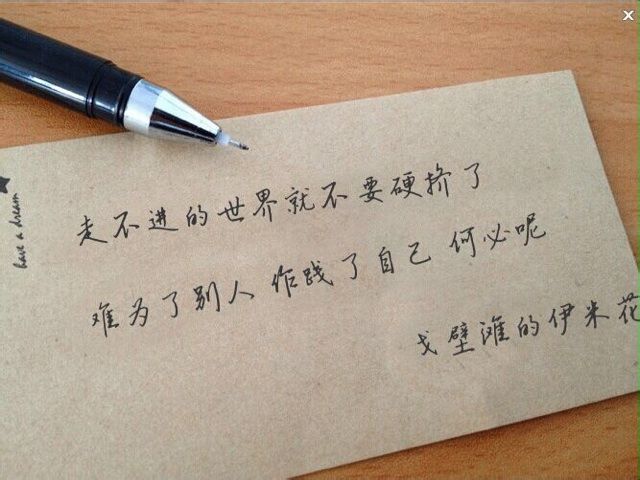 走不进的世界就不要硬挤了
难为了别人 作践了自己 何必呢
戈壁滩的伊米花
have a dream